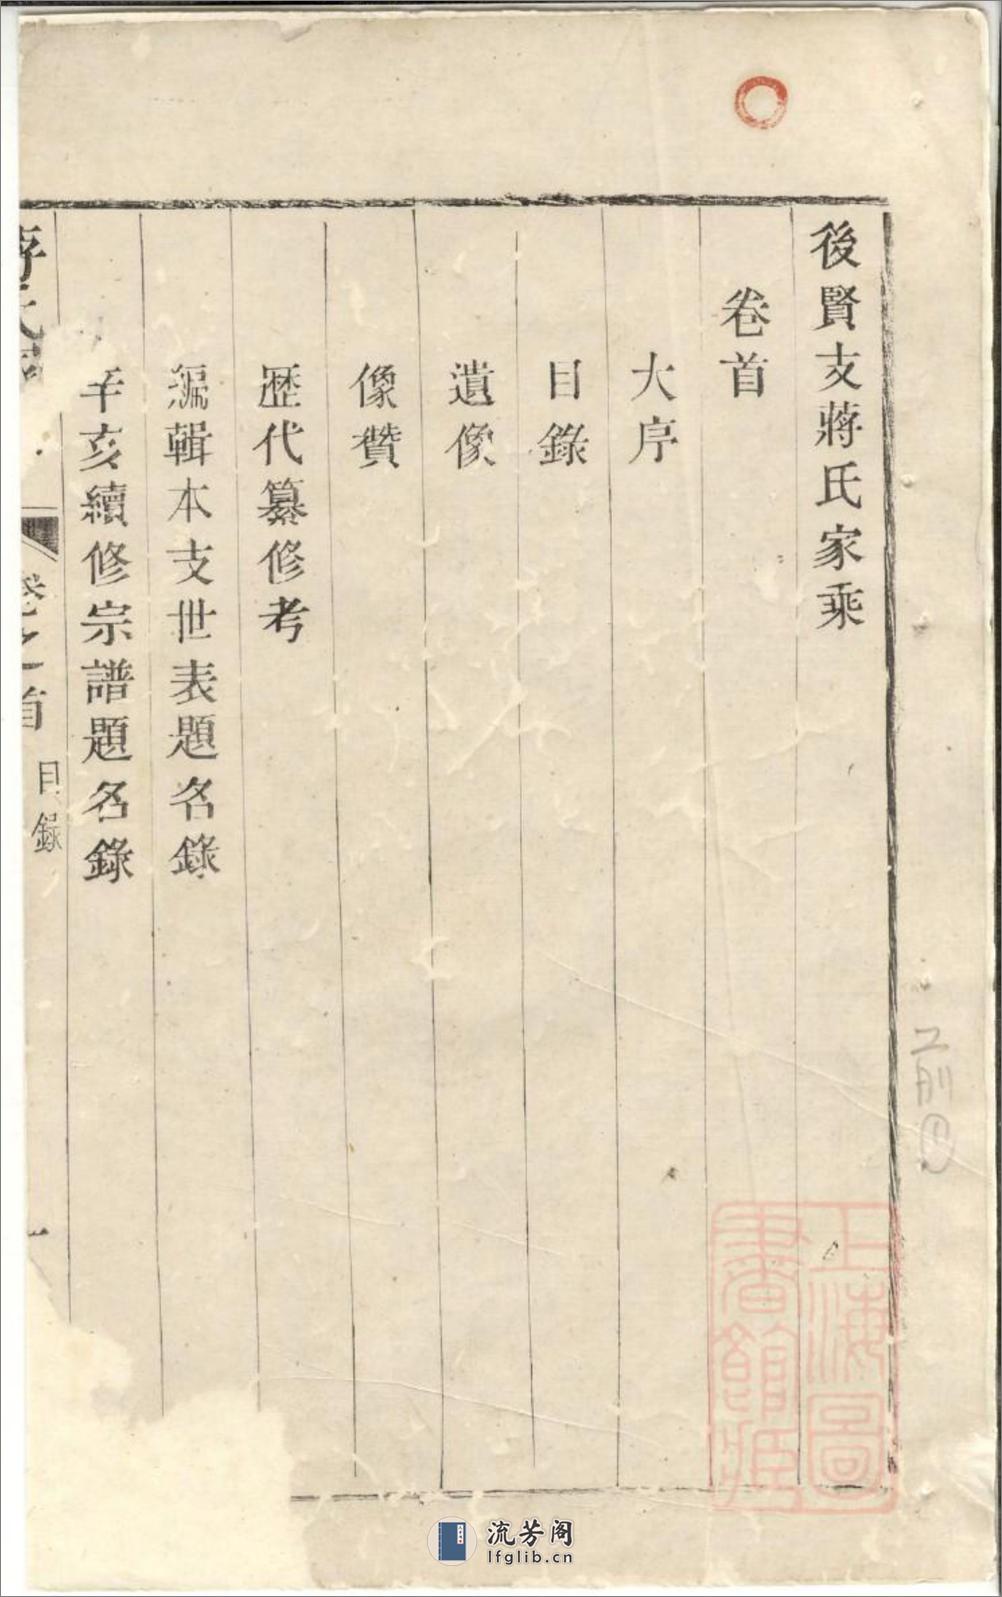 後賢支蔣氏家乘
卷首
大序
目錄
遺像
像贊
歷代纂修考
編輯本支世表題名錄
辛亥續修宗譜題名錄
卷之首
目錄
一
前①
上海圖
書館藏
流芳阁
lfglib.cn